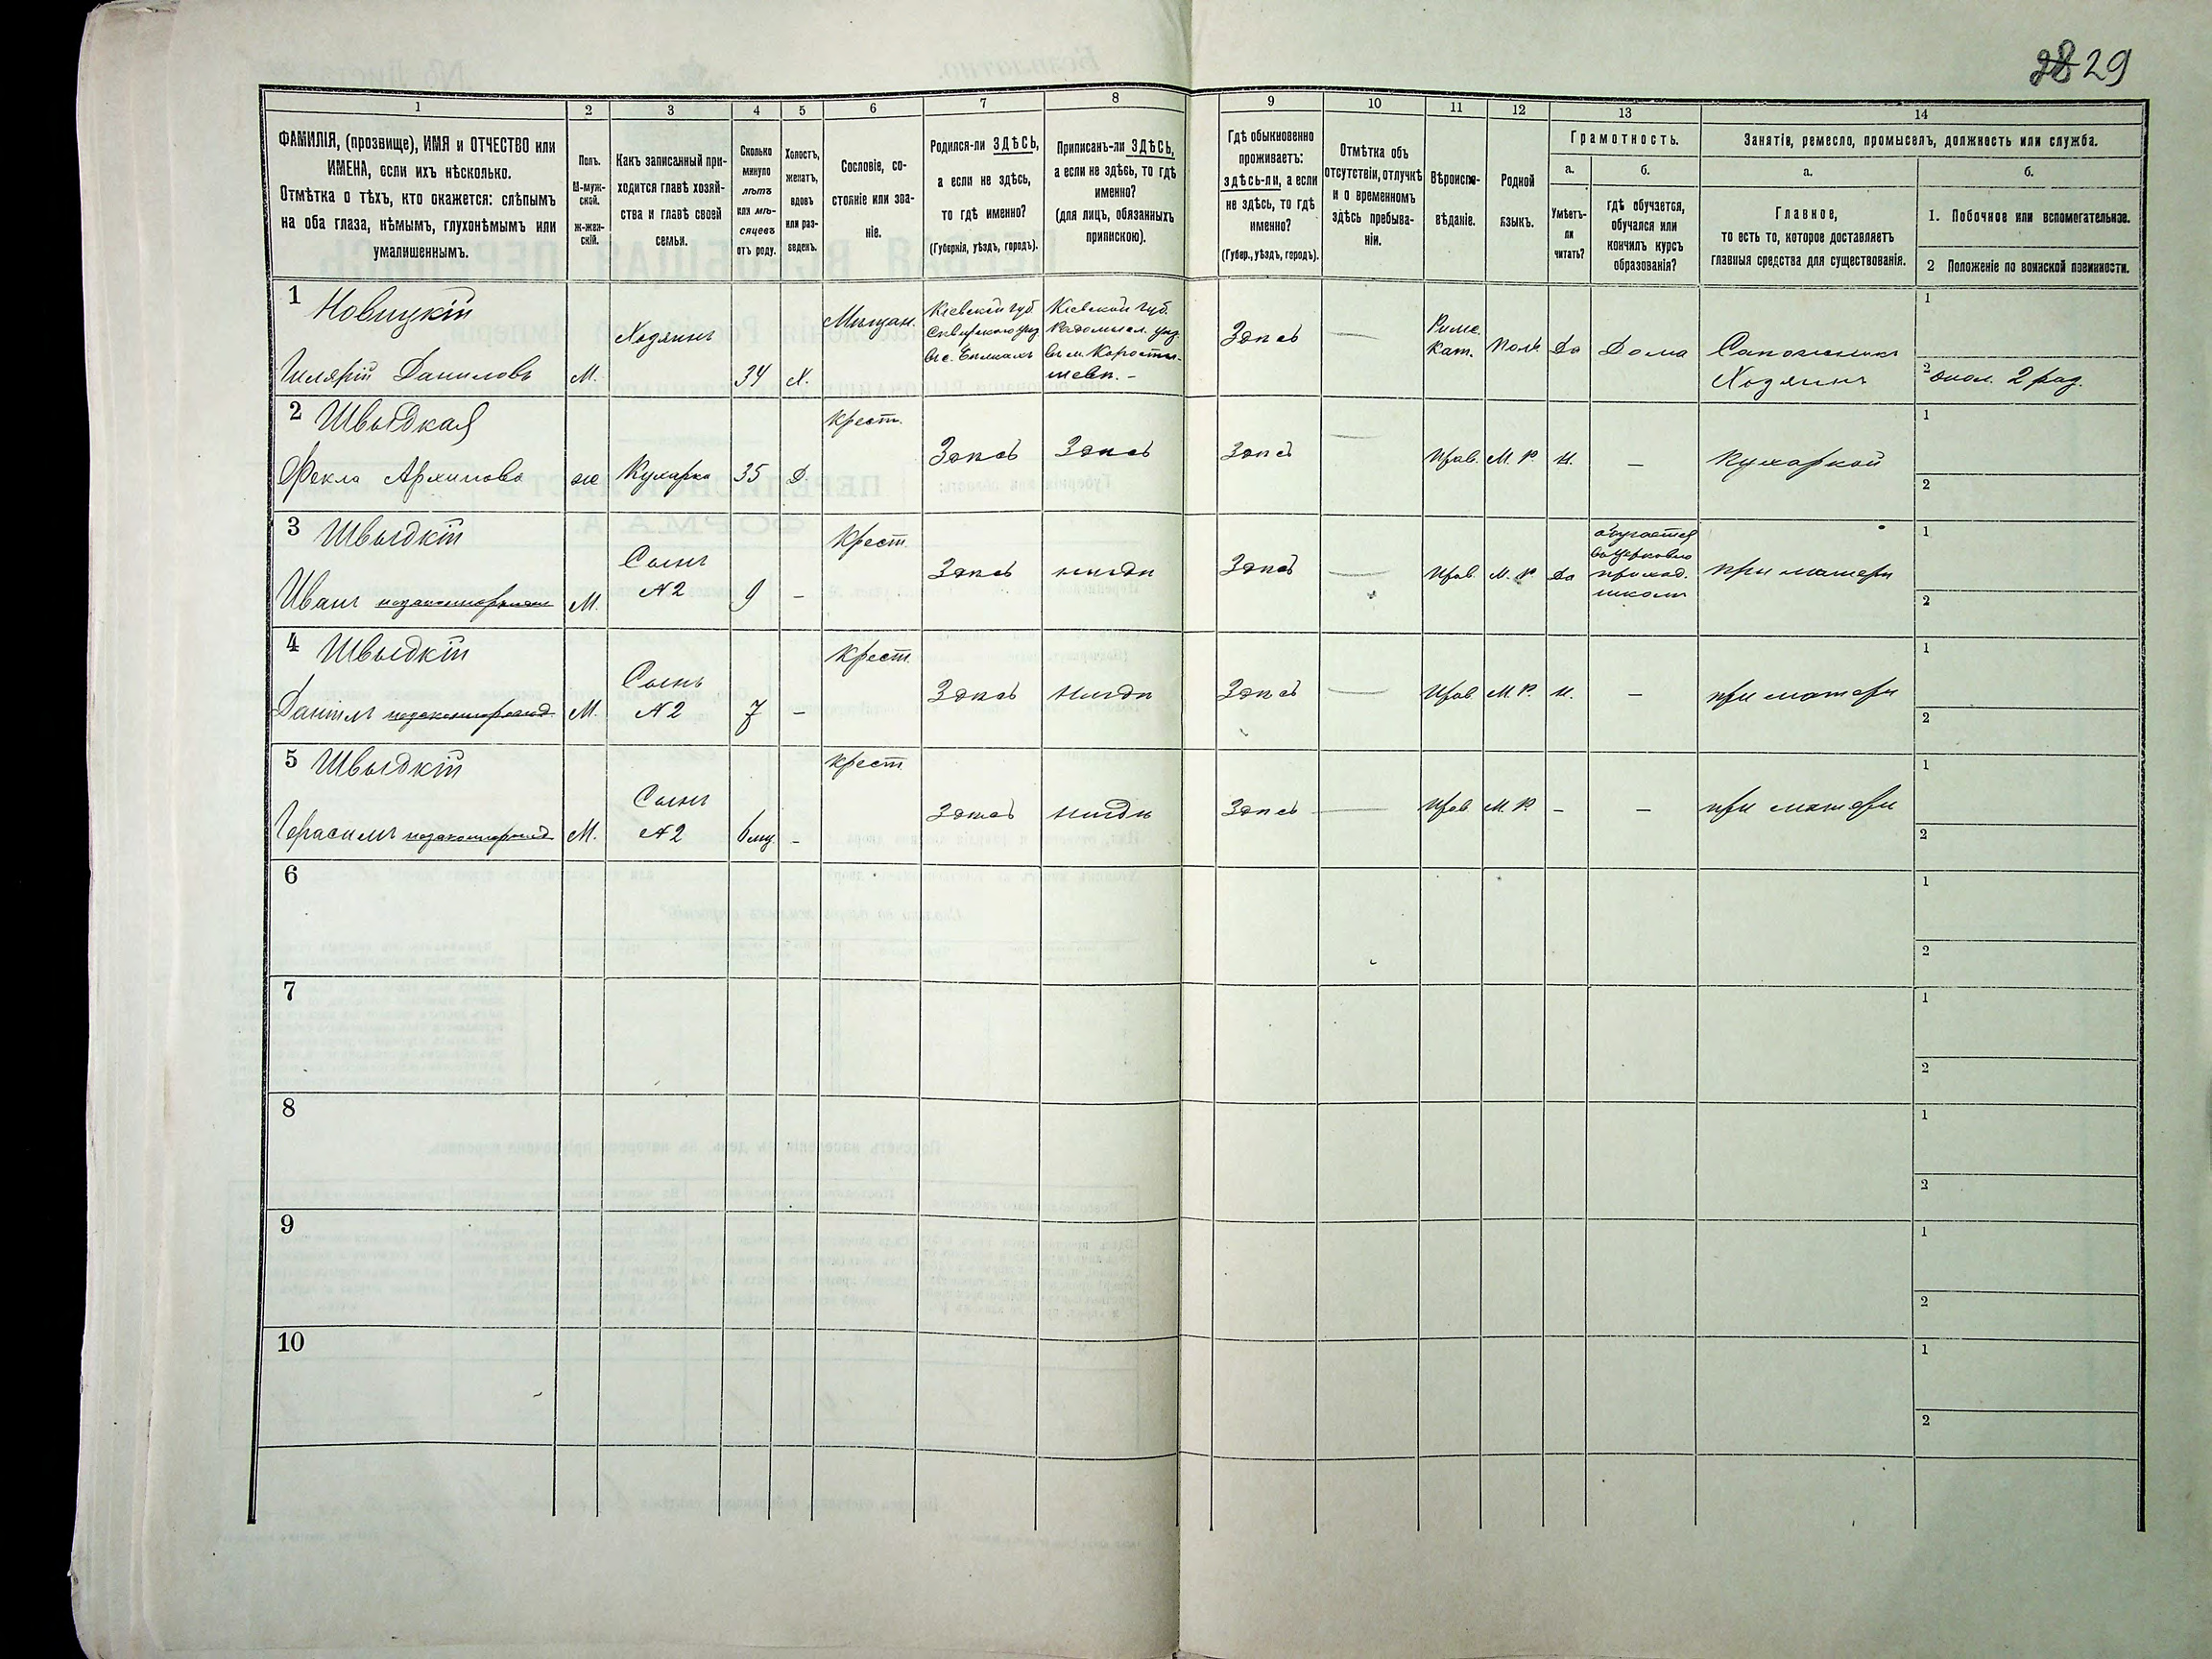 28 29
1 2 3 4 5 6 7 8 9 10 11 12 13 14
ФАМИЛІЯ, (прозвище), ИМЯ и ОТЧЕСТВО или ИМЕНА, если ихъ нѣсколько.
Отмѣтка о тѣхъ, кто окажется: слѣпымъ на оба глаза, нѣмымъ, глухонѣмымъ или умалишеннымъ.
Полъ. М-мужской. Ж-женскій.
Какъ записанный приходится главѣ хозяйства и главѣ своей семьи.
Сколько минуло лѣтъ или мѣсяцевъ отъ роду.
Холостъ, женатъ, вдовъ или разведенъ.
Сословіе, состояніе или званіе.
Родился-ли ЗДѢСЬ, а если не здѣсь, то гдѣ именно? (Губернія, уѣздъ, городъ).
Приписанъ-ли ЗДѢСЬ, а если не здѣсь, то гдѣ именно? (для лицъ, обязанныхъ припискою).
Гдѣ обыкновенно проживаетъ: здѣсь-ли, а если не здѣсь, то гдѣ именно? (Губер., уѣздъ, городъ).
Отмѣтка объ отсутствіи, отлучкѣ и о временномъ здѣсь пребываніи.
Вѣроисповѣданіе.
Родной языкъ.
Грамотность.
а. Умѣетъ-ли читать?
б. гдѣ обучается, обучался или кончилъ курсъ образованія?
Занятіе, ремесло, промыселъ, должность или служба.
а. Главное, то есть то, которое доставляетъ главныя средства для существованія.
б.
1. Побочное или вспомогательное.
2 Положеніе по воинской повинности.
1 Новицкій
Гилярій Даниловъ М. Хозяинъ 34 Х. Мѣщан.
Кіевской губ. Сквирскаго уѣз. въ с.
Кіевской губ. Радомысл. уѣз. въ м. Коростышевѣ. -
Здѣсь — Римс. Кат. Польс. Да Дома Сапожникъ Хозяинъ
1
2 опол. 2 раз.
2 Швыдкая
Фекла Архипова ж Кухарка 35 Д. крест. Здѣсь Здѣсь Здѣсь — Прав. М. Р. Н. — Кухаркой
1
2
3 Швыдкій
Иванъ незаконнорожден М. Сынъ N2 9 – Крест. Здѣсь нигдѣ Здѣсь — Прав. М. Р. Да обучается въ церковно приход. школѣ при матери
1
2
4 Швыдкій
Даніилъ незаконнорожд М. Сынъ N2 7 – Крест. Здѣсь нигдѣ Здѣсь — Прав М. Р. Н. — при матери
1
2
5 Швыдкій
Герасимъ незаконнорожд М. Сынъ N2 6 мц. – крест Здѣсь нигдѣ Здѣсь — Прав М. Р. – — при матери
1
2
6
1
2
7
1
2
8
1
2
9
1
2
10
1
2